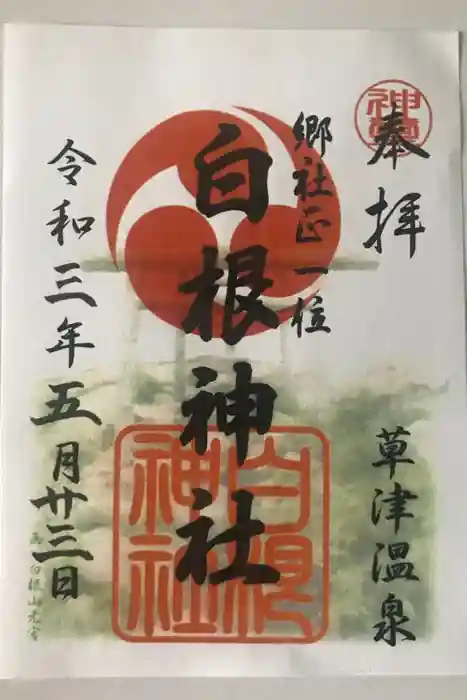 奉拝
草津温泉
郷社正一位
白根神社
白根
神社
令和三年五月廿三日